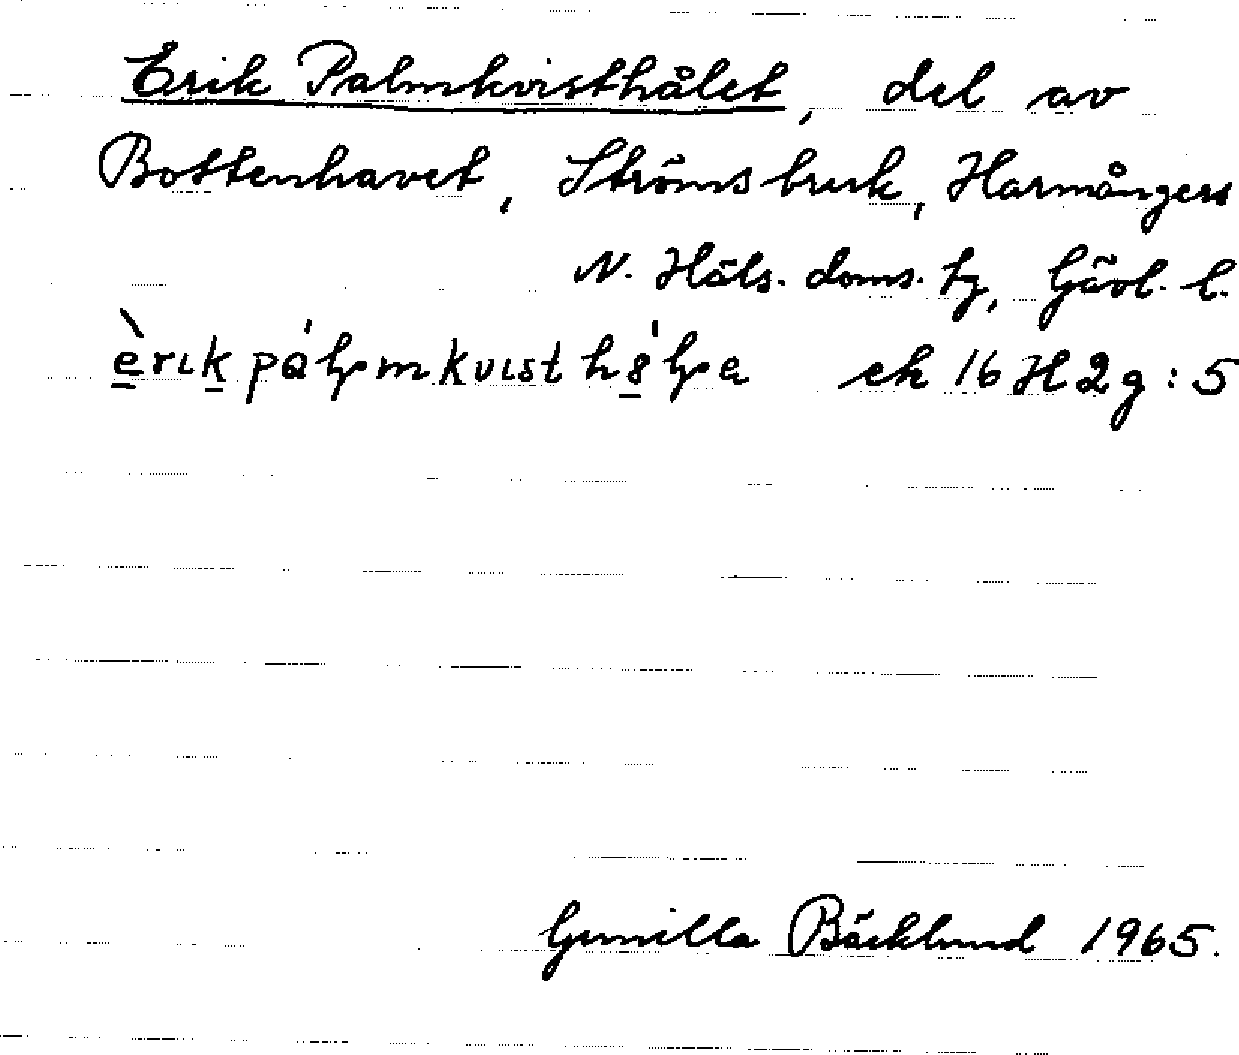 Erik Palmkvisthålet, del av
Bottenhavet, Strömsbruk, Harmångers
N. Häls. doms. tg, Gävl. l.
ek 16 H 2 g : 5
Gunilla Bäcklund 1965.